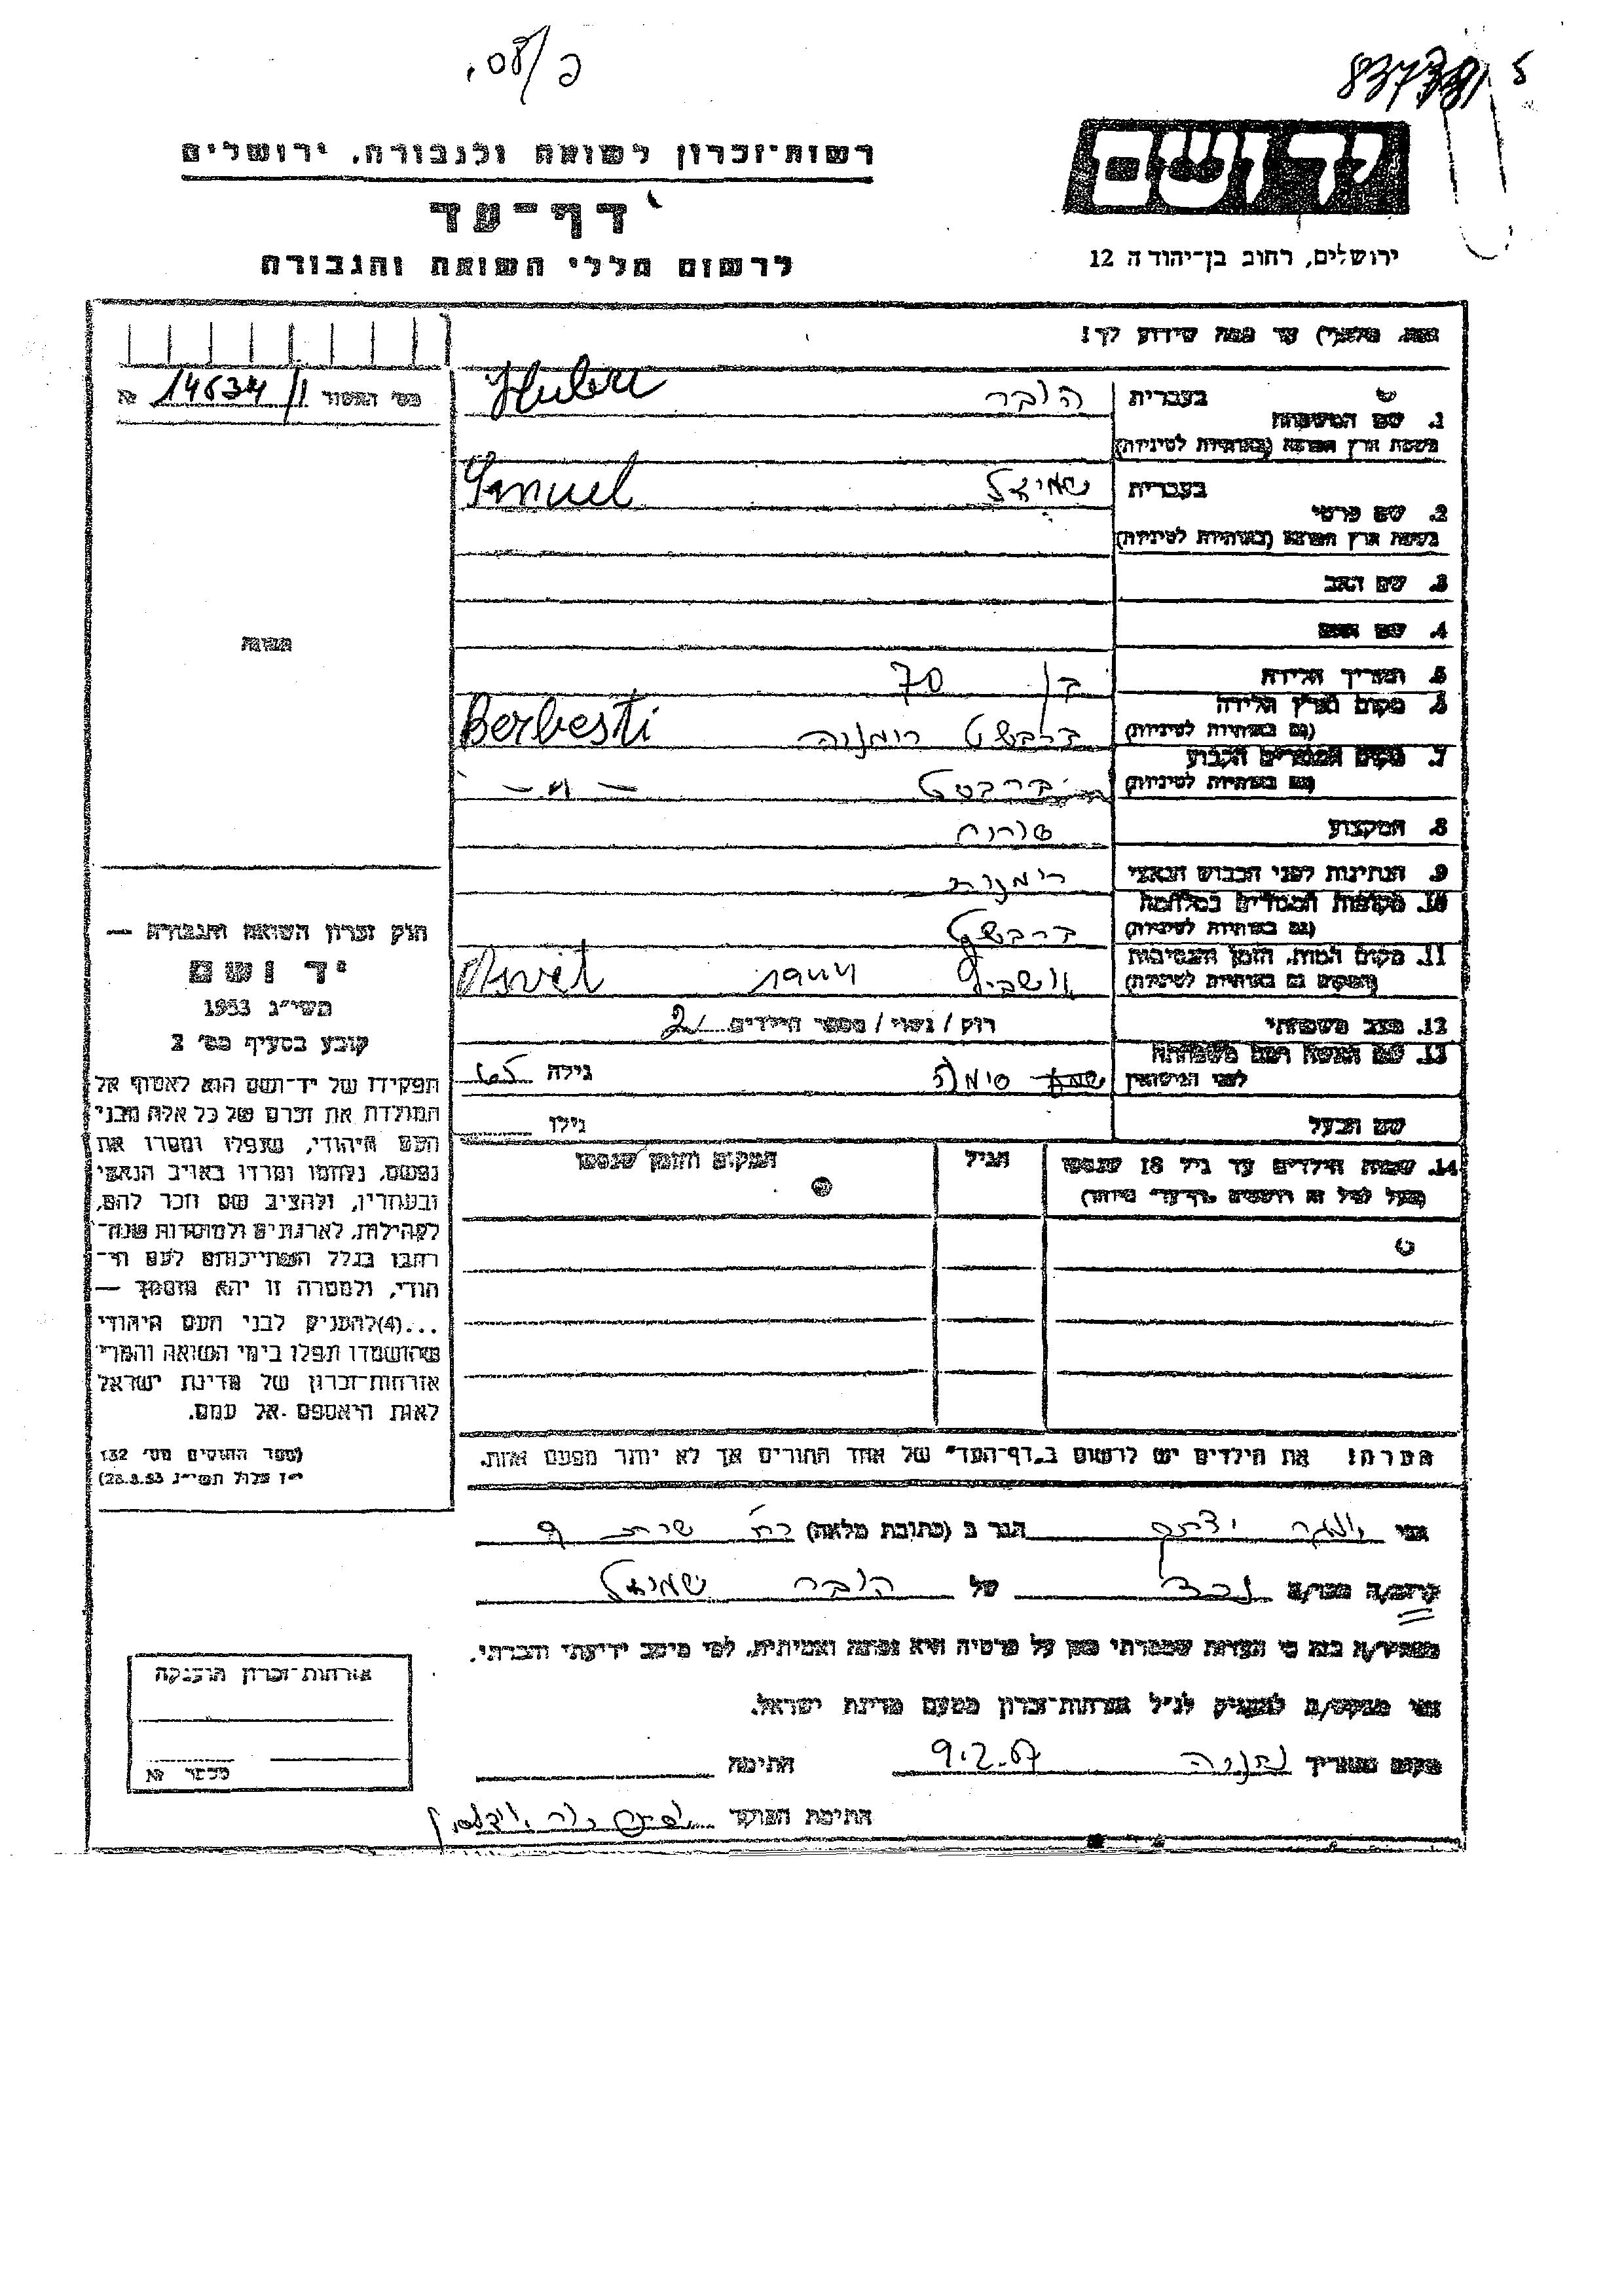 פ/08.
837381
5
יד ושם
רשות־זכרון לשואה ולגבורה, ירושלים
דף־עד
לרשום חללי השואה והגבורה
ירושלים, רחוב בן־יהודה 12
נא, מלא(י) עד כמה שידוע לך!
מס׳ האסיר 14634/1 №
1. שם המשפחה
בעברית הובר Huber
בשפת ארץ המוצא (באותיות לטיניות)
2. שם פרטי
בעברית שמואל Samuel
בשפת ארץ המוצא (באותיות לטיניות)
3. שם האב
4. שם האם
תמונה
5. תאריך הלידה בן 70
6. מקום וארץ הלידה
(גם באותיות לטיניות) ברבשט רומניה Berbesti
7. מקום המגורים הקבוע
(גם באותיות לטיניות) ברבשט — " —
8. המקצוע סוחר
9. הנתינות לפני הכבוש הנאצי רומנית
10. מקומות המגורים במלחמה
(גם באותיות לטיניות) ברבשט
11. מקום המות, הזמן והנסיבות
(המקום גם באותיות לטיניות)
12. מצב משפחתי רוק / נשוי / מספר הילדים 2
13. שם האשה ושם משפחתה
לפני הנישואין סימה גילה 65
שם הבעל גילו
14. שמות הילדים עד גיל 18 שנספו
(מעל לגיל זה רושמים „דף־עד״ מיוחד)
הגיל
המקום והזמן שנספו
הערה: את הילדים יש לרשום ב„דף־העד״ של אחד ההורים אך לא יותר מפעם אחת.
חוק זכרון השואה והגבורה —
יד ושם
תשי״ג 1953
קובע בסעיף מס׳ 2
תפקידו של יד־ושם הוא לאסוף אל
המולדת את זכרם של כל אלה מבני
העם היהודי, שנפלו ומסרו את
נפשם, נלחמו ומרדו באויב הנאצי
ובעוזריו, ולהציב שם וזכר להם,
לקהילות, לארגונים ולמוסדות שנח־
רבו בגלל השתייכותם לעם הי־
הודי, ולמטרה זו יהא מוסמך —
...(4)להעניק לבני העם היהודי
שהושמדו ונפלו בימי השואה והמרי
אזרחות־זכרון של מדינת ישראל
לאות היאספם אל עמם.
(ספר החוקים מס׳ 132
י״ז אלול תשי״ג 28.8.53)
אני הגר ב (כתובת מלאה)
קרוב/ה מכר/ה נכד של הובר שמואל
מצהיר/ה בזה כי העדות שמסרתי כאן על פרטיה היא נכונה ואמיתית, לפי מיטב ידיעתי והכרתי.
אני מבקש/ת להעניק לנ״ל אזרחות־זכרון מטעם מדינת ישראל.
מקום ותאריך נתניה 9.2.67 חתימה
חתימת הפוקד
אזרחות־זכרון הוענקה
מספר №